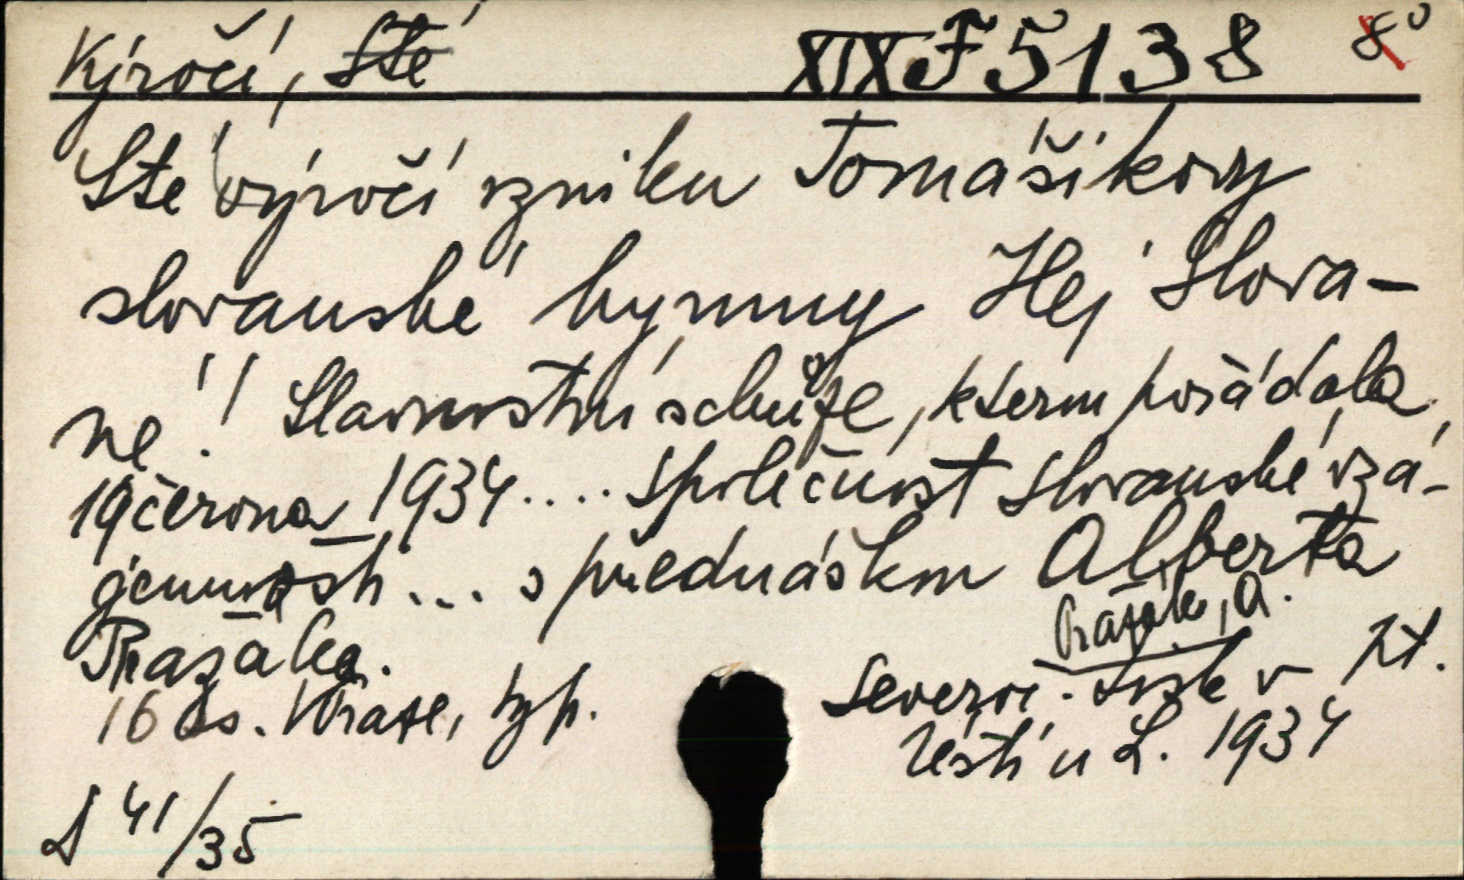 Výročí, Sté XIX F 5138 8°
Sté výročí vzniku Tomášikovy
slovanské hymny Hej Slova-
né! Slavnostní schůze, kterou pořádala
19 června 1934 .... Společnost slovanské vzá-
jemnosti ... s přednáškou Alberta
Pražáka.
Pražák, A.
16 ss. V Praze, typ. Severoč. tisk v Zt.
Ústí n L. 1934
D 41/35